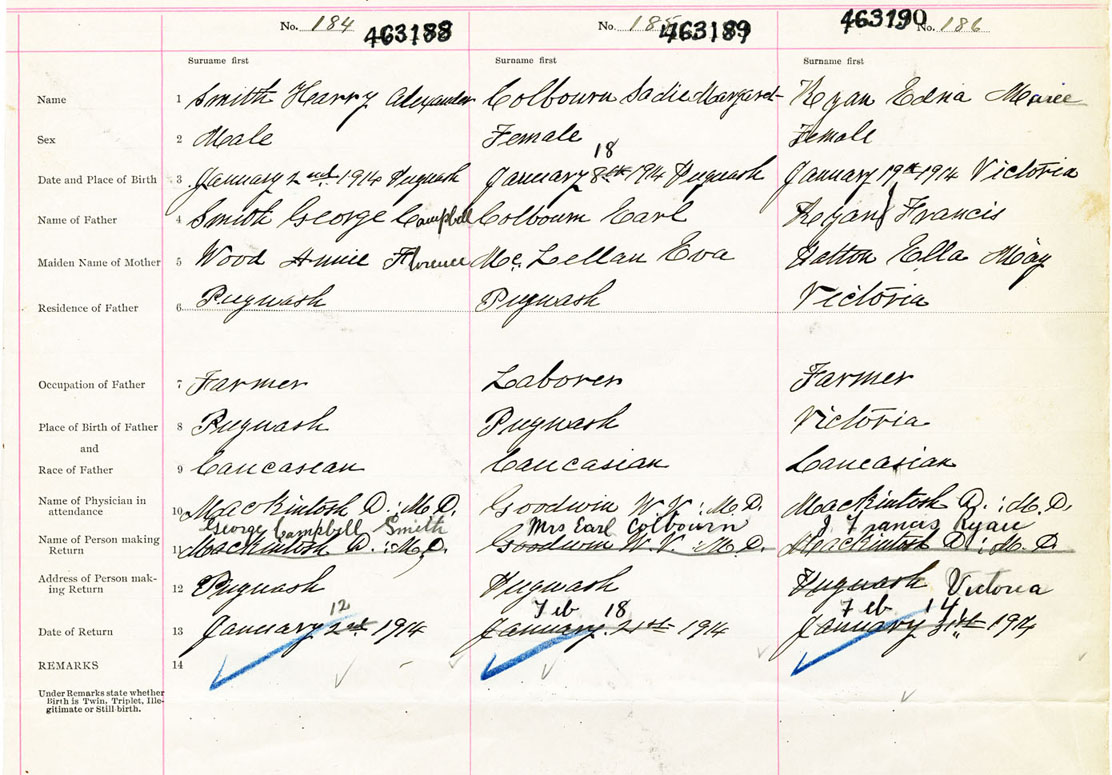 No. 184 463188 No. 185 463189 463190 No. 186
Surname first Surname first Surname first
Name 1 Smith Harry Alexander Colbourn Sadie Margaret Ryan Edna Marie
Sex 2 Male Female Female
18
Date and Place of Birth 3 January 2nd 1914 Pugwash January 8th 1914 Pugwash January 19th 1914 Victoria
Name of Father 4 Smith George Campbell Colbourn Earl Ryan J Francis
Maiden Name of Mother 5 Wood Annie Florence Mc Lellan Eva Hatton Ella May
Residence of Father 6 Pugwash Pugwash Victoria
Occupation of Father 7 Farmer Laborer Farmer
Place of Birth of Father 8 Pugwash Pugwash Victoria
and
Race of Father 9 Caucasean Caucasian Caucasian
Name of Physician in
attendance 10 Mackintosh D. : M.D. Goodwin W.V. : M.D. Mackintosh D. : M.D.
George Campbell Smith Mrs Earl Colbourn J. Francis Ryan
Name of Person making
Return 11 Mackintosh D. : M.D. Goodwin W.V. : M.D. Mackintosh D. : M.D.
Address of Person mak-
ing Return 12 Pugwash Pugwash Pugwash Victoria
12 Feb 18 Feb 14
Date of Return 13 January 2nd 1914 January 21st 1914 January 31st 1914
REMARKS 14
Under Remarks state whether
Birth is Twin, Triplet, Ille-
gitimate or Still-birth.